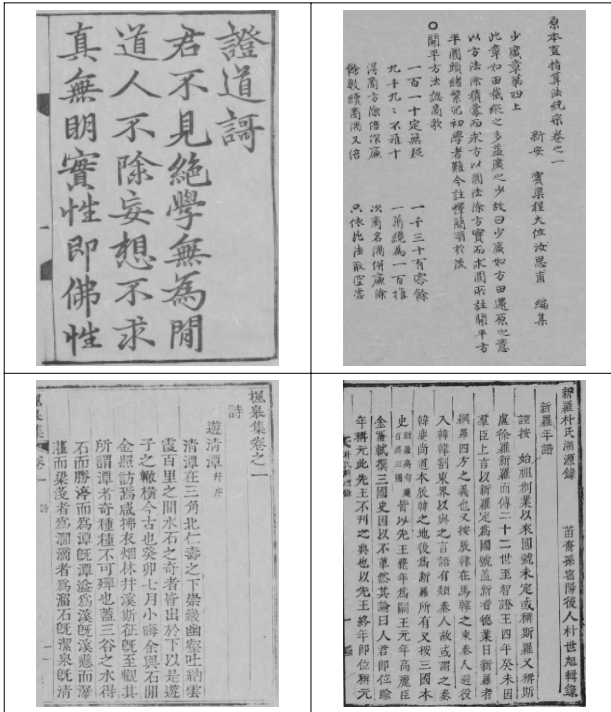 證道謌
君不見絶學無為閒
道人不除妄想不求
真無明實性即佛性
原本直指算法統宗卷之一
新安 賓渠程大位汝思甫 編集
少廣章第四上
此章如田截縱之多益廣之少故曰少廣如方田還原之意
以方法除積冪而求方以圓法除方實而求圓所註開平方
平圓頭緒繁冗初學者難今註釋簡明於後
○開平方法認商歌
一百一十定無疑 一千三十有零餘
九千九九不離十 一萬纔為一百推
得商方除倍作廉 次商名隅併廉除
餘數續商隅又倍 只依此法取空當
楓皐集卷之一
詩
遊清潭 并序
清潭在三角北仁壽之下崇巖幽壑吐納雲
霞百里之間水石之奇者皆出於下以是遊
子之轍橫今古也癸卯七月小晦余與石閒
金照訪焉咸拂衣烟林幷溪斯征旣至觀其
所謂潭者奇種種不可殫也蓋三谷之水得
石而勝渟而爲潭旣潭溢爲溪旣溪懸而瀑
而梁淺者爲滴者爲溜石旣潔泉旣清
新羅朴氏溯源錄 苗裔孫密陽後人朴世旭輯錄
新羅年譜
謹按 始祖創業以來國號未定或稱斯羅又稱斯
盧徐羅新羅而傳二十二世至智證王四年癸未因
羣臣上言以新羅定爲國號盖新者德業日新羅者
網羅四方之義也又按辰韓在馬韓之東秦人避役
入韓韓割東界以與之言語有類秦人故或謂之秦
韓慶尚道本辰韓之地後爲新羅所有又按三國本
史 皆以先王薨年爲嗣王元年高麗臣
金富軾撰三國史因以不革然其論曰人君即位踰
年稱元此先王不刊之典也以先王終年即位稱元